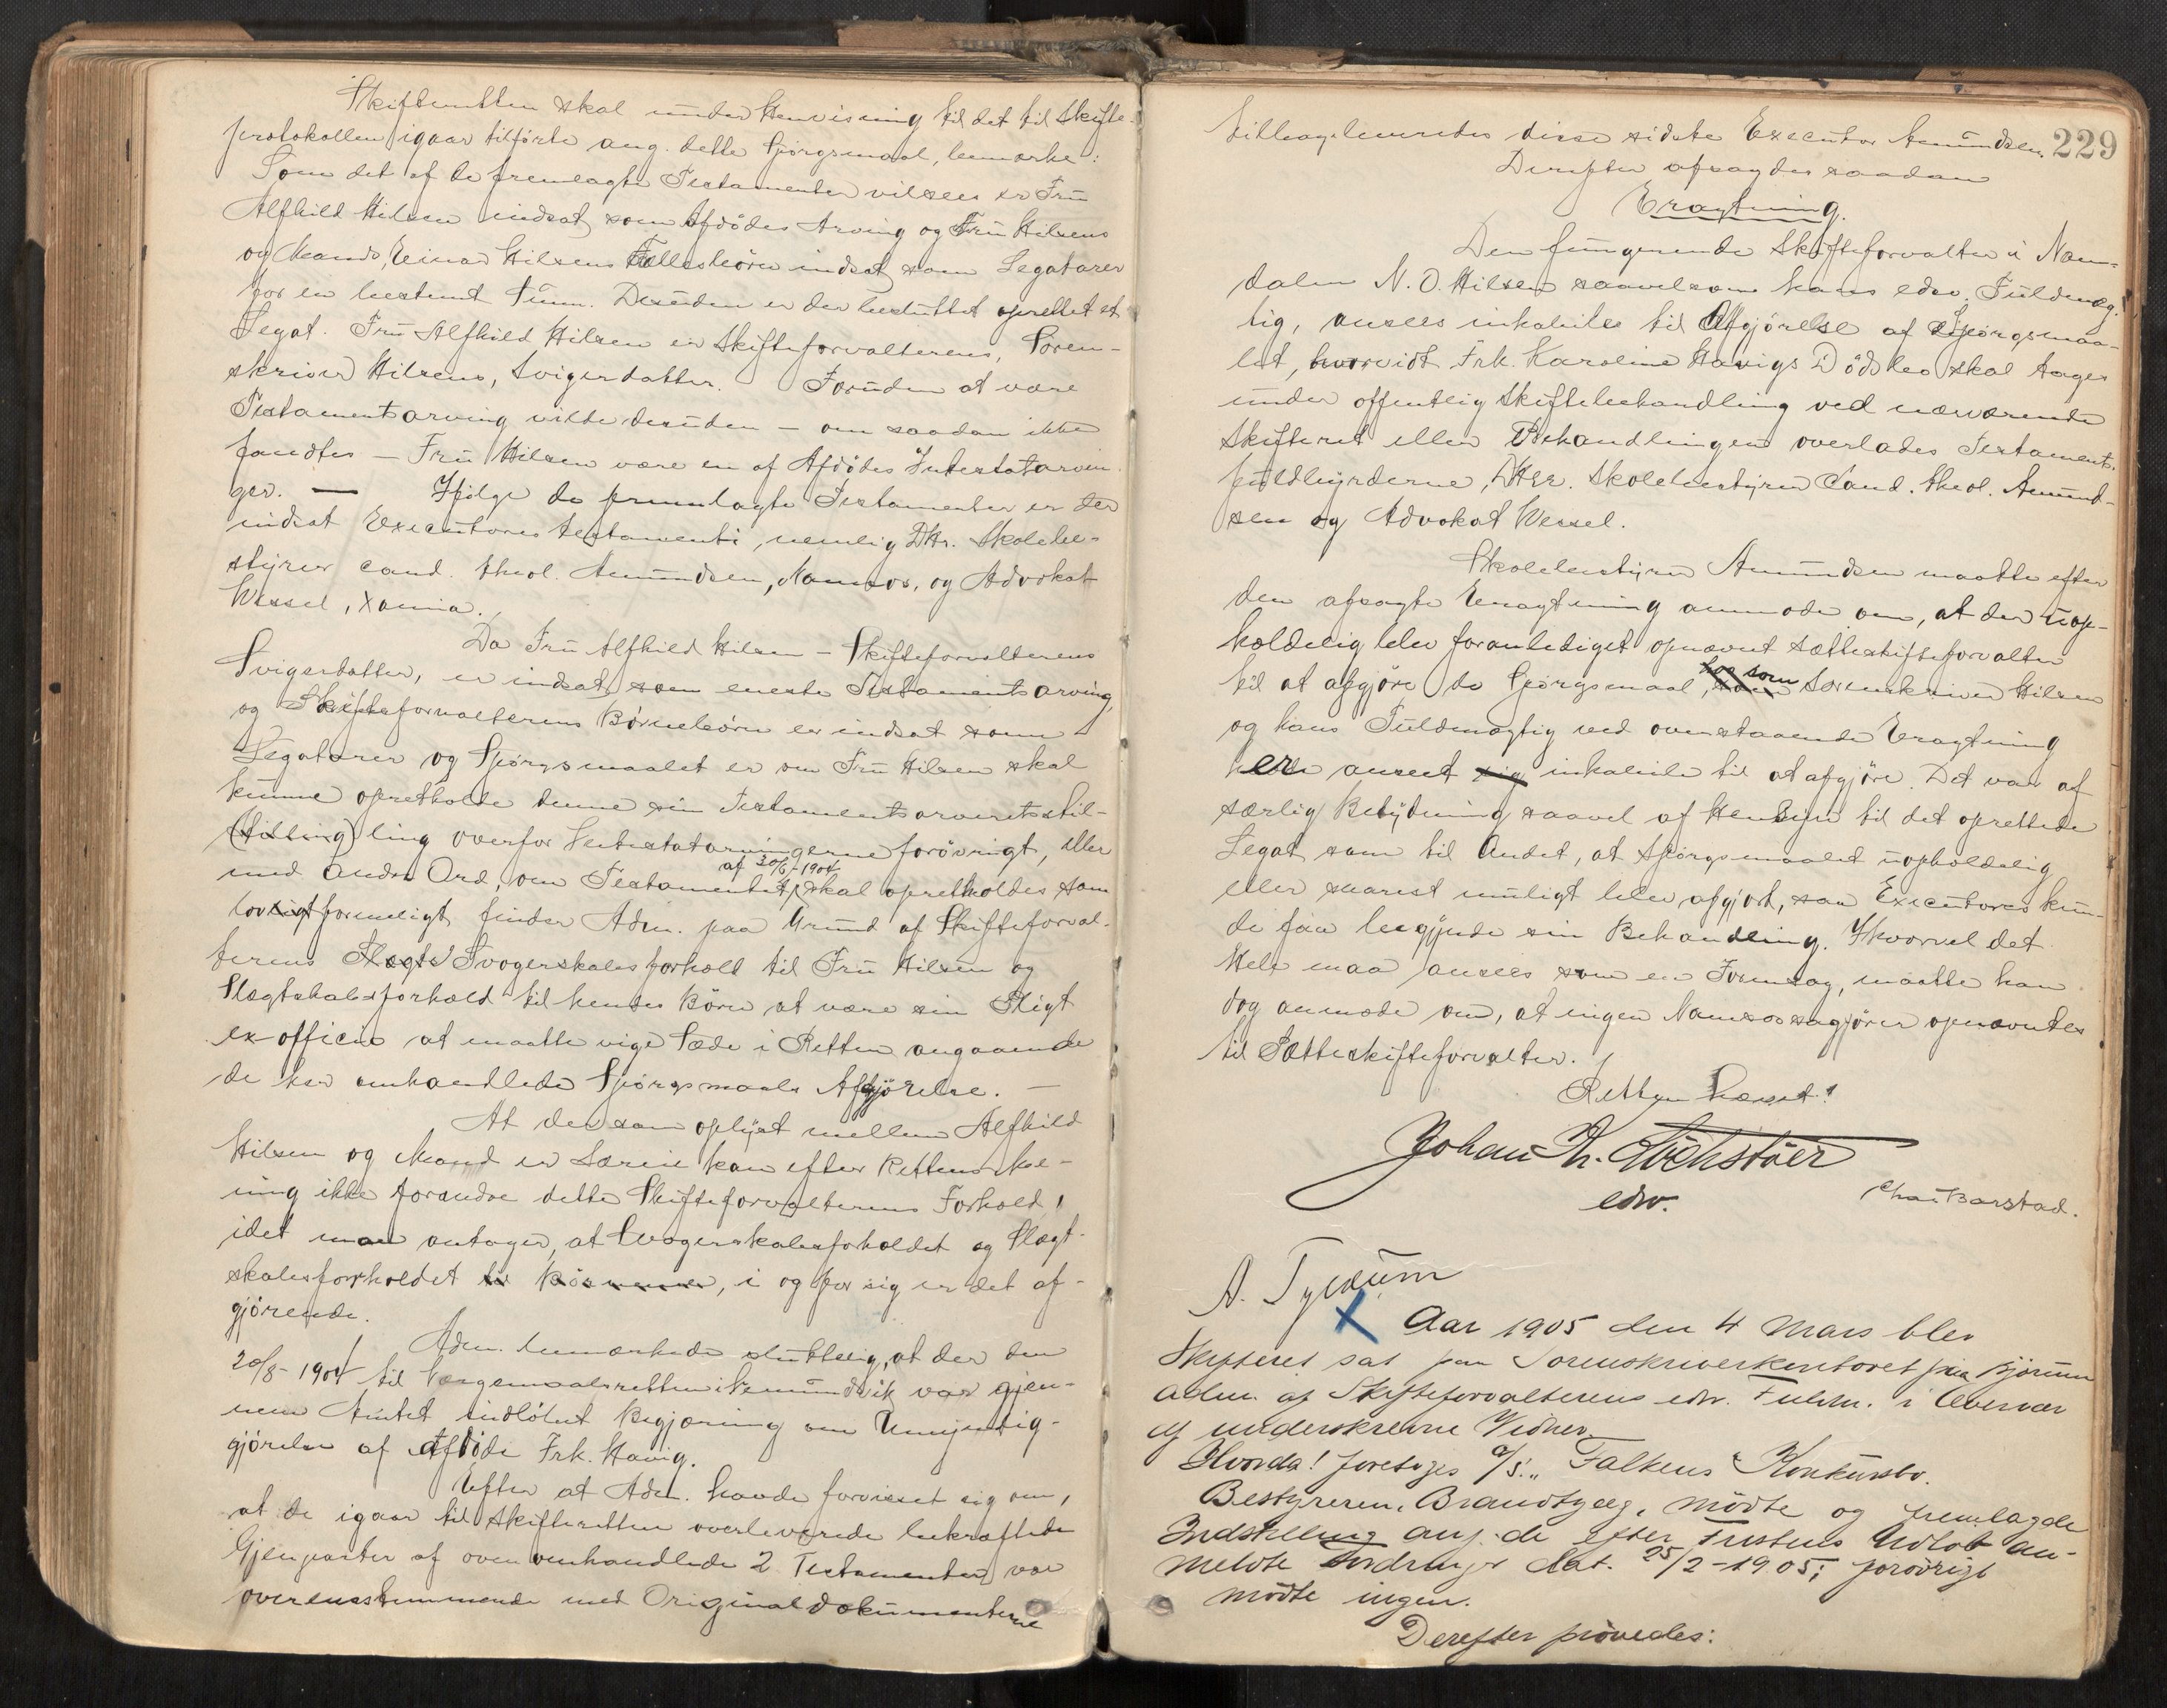 Skifteretten skal under Henvisning til det til Skifte-
protokollen igaar tilførte ang. dette Spørgsmaal, bemærke:
Som det af de fremlagte Testamenter vil sees er Fru
Alfhild Hilsen indsat som Afdødes Arving og Fru Hilsens
og Mands, Einar Hilsens Fællesbørn indsat som Legatarer
for en bestemt Sum. Desuden er der besluttet oprettet et
Legat. Fru Alfhild Hilsen er Skifteforvalterens, Soren-
skriver Hilsens, Svigerdatter. Foruden at være
Testamentsarving vilde desuden - om saadan ikke
fandtes - Fru Hilsen være en af Afdødes Intestatarvin-
ger. — Ifølge de fremlagte Testamenter er der
indsat Executores testamenti, nemlig DHr. Skolebe-
styrer cand. theol. Amundsen, Namsos, og Advokat
Wessel, Xania.
Da Fru Alfhild Hilsen - Skifteforvalterens
Svigerdatter, er indsat som eneste Testamentsarving,
og Skifteforvalterens Børnebørn er indsat som
Legatarer og Spørgsmaalet er om Fru Hilsen skal
kunne opretholde denne sin Testamentsarveretsstil-
(stilling) ling overfor Intestatarvingerne forøvrigt, eller
med andre Ord, om Testamentet af 20/8-1904 skal opretholdes som
lovligt formeligt finder Adm. paa Grund af Skifteforval-
terens Slægts Svogerskabsforhold til Fru Hilsen og
Slægtskabsforhold til hendes Børn at være sin Pligt
ex officio at maatte vige Sæde i Retten angaaende
de her omhandlede Spørgsmaals Afgjørelse. —
At der som oplyst mellem Alfhild
Hilsen og Mand er Særeie kan efter Rettens Me-
ning ikke forandre dette Skifteforvalterens Forhold,
idet man antager, at Svogerskabsforholdet og Slægt-
skabsforholdet til Børnene, i og for sig er det af-
gjørende.
Adm. bemærkede sluttelig, at der den
20/8-1904 til Værgemaalsretten i Vemundvik var gjen-
nem Amtet indløbet Begjæring om Umyndig-
gjørelse af Afdøde Frk. Havig.
Efter at Adm. havde forvisset sig om,
at de igaar til Skifteretten overleverede bekræftede
Gjenparter af oven omhandlede 2 Testamenter var
overensstemmende med Originaldokumenterne
229
tilbageleveredes disse sidste Executor Amundsen.
Derefter afsagdes saadan
Eragtning.
Den fungerende Skifteforvalter i Nam-
dalen N. O. Hilsen saavelsom hans edsv. Fuldmæg-
tig, ansees inhabile til Afgjørelse af Spørgsmaa-
let, hvorvidt Frk. Karoline Havigs Dødsbo skal tages
under offentlig Skiftebehandling ved nærværende
Skifteret eller Behandlingen overlades Testaments-
fuldbyrderne, DHrr. Skolebestyrer Cand. theol. Amund-
sen og Advokat Wessel.
Skolebestyrer Amundsen maatte efter
den afsagte Eragtning anmode om, at der uop-
holdelig blev foranlediget opnævnt Sætteskifteforvalter
til at afgjøre de Spørgsmaal, som Sorenskriver Hilsen
og hans Fuldmægtig ved ovenstaaende Eragtning
er anseet sig inhabile til at afgjøre. Det var af
særlig Betydning saavel af Hensyn til det oprettede
Legat som til Andet, at Spørgsmaalet uopholdelig
eller snarest muligt blev afgjort, saa Executores kun-
de faa begynde sin Behandling. Ihvorvel det
Hele maa ansees som en Formsag, maatte han
dog anmode om, at ingen Namsossagfører opnævntes
til Sætteskifteforvalter.
Retten hævet!
Johan Kr. Lockstöer
edsv.
Chas Barstad.
A. Tyldum
X Aar 1905 den 4 Mars blev
Skifteret sat paa Sorenskriverkontoret paa Bjørum
adm. af Skifteforvalterens edsv. Fuldm. i Overvær
af underskrevne Vidner.
Hvorda! foretoges A/S. „Falkens" Konkursbo.
Bestyreren, Brandtzæg, mødte og fremlagde
Indstilling ang. de efter Fristens Udløb an-
meldte Fordringer dat. 25/2-1905; forøvrigt
mødte ingen.
Derefter prøvedes: